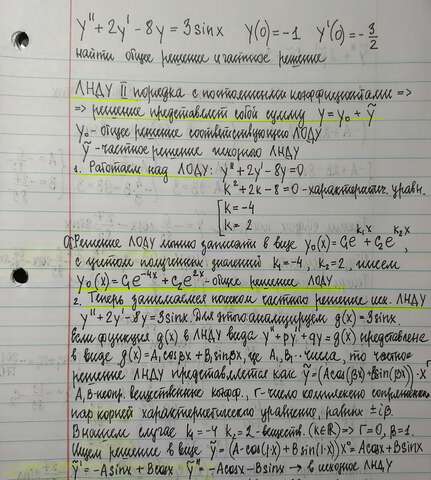 y'' + 2y' - 8y = 3sinx y(0) = -1 y'(0) = -3/2
найти общее решение и частное решение
ЛНДУ II порядка с постоянными коэффициентами =>
=> решение представляет собой сумму y = y₀ + ỹ
y₀ - общее решение соответствующего ЛОДУ
ỹ - частное решение исходного ЛНДУ
1. Работаем над ЛОДУ: y'' + 2y' - 8y = 0
k² + 2k - 8 = 0 - характеристич. уравн.
[ k = -4
k = 2
Решение ЛОДУ можно записать в виде y₀(x) = C₁e^{k₁x} + C₂e^{k₂x},
с учетом полученных значений k₁ = -4, k₂ = 2, имеем
y₀(x) = C₁e^{-4x} + C₂e^{2x} - общее решение ЛОДУ
2. Теперь занимаемся поиском частного решения исх. ЛНДУ
y'' + 2y' - 8y = 3sinx. Для этого анализируем g(x) = 3sinx.
Если функция g(x) в ЛНДУ вида y'' + py' + qy = g(x) представлена
в виде g(x) = A₁cosβx + B₁sinβx, где A₁, B₁ - числа, то частное
решение ЛНДУ представляется как ỹ = (Acos(βx) + Bsin(βx))·x^r
A, B - неопр. вещественные коэфф., r - число комплексно сопряженных
пар корней характеристического уравнения, равных ±iβ.
В нашем случае k₁ = -4 k₂ = 2 - веществ. (k∈R) => r = 0, β = 1.
Ищем решение в виде ỹ = (A·cos(1·x) + Bsin(1·x))x⁰ = Acosx + Bsinx
ỹ' = -Asinx + Bcosx ỹ'' = -Acosx - Bsinx → в исходное ЛНДУ